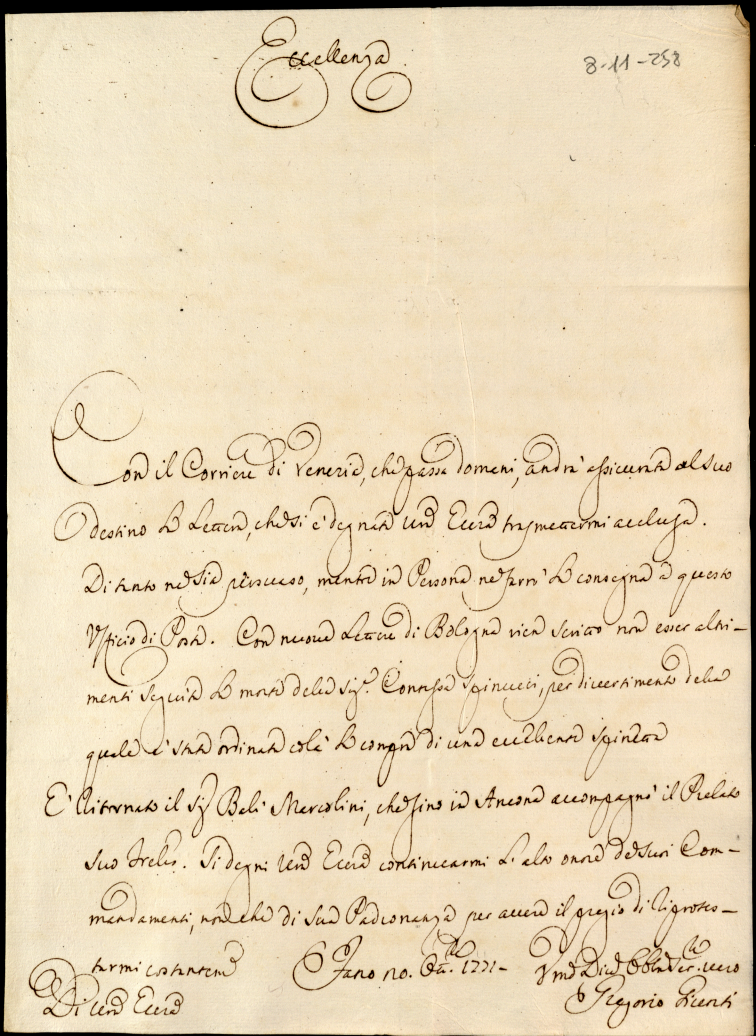 Eccellenza
8-11-258
Con il Corriere di Venezia, che passa domani, andrà assicurata al suo
destino la Lettera, che si è degnata Vr̃a Ecc̃a trasmettermi acclusa.
Di tanto ne sia persuaso, mentre in Persona ne farò la consegna à questo
Ufficio di Posta. Con nuove Lettere di Bologna vien scritto non esser altri-
menti seguita la morte della Sig.ra Contessa Spinucci, per divertimento della
quale è stata ordinata colà la compra di una eccellente spinetta
E' Ritornato il Sig.r Balì Marcolini, che sino in Ancona accompagnò il Prelato
suo Fratello. Si degni Vr̃a Ecc̃a continuarmi l'alto onore de suoi Com-
mandamenti, non che di sua Padronanza per avere il pregio di riprotes-
tarmi costantem̃e
Fano 20. 1771-
Di Vr̃a Ecc̃a
Gregorio